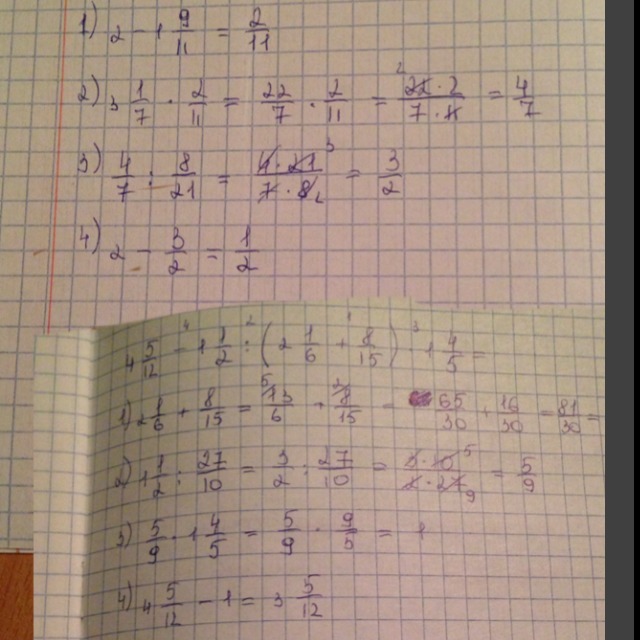 1) 2 - 1 9/11 = 2/11
2) 3 1/7 · 2/11 = 22/7 · 2/11 = 22 · 2 / 7 · 11 = 4/7
3) 4/7 : 8/21 = 4 · 21 / 7 · 8 = 3/2
4) 2 - 3/2 = 1/2
4 5/12 - 1 1/2 : (2 1/6 + 8/15) · 1 4/5 =
1) 2 1/6 + 8/15 = 13/6 + 8/15 = 65/30 + 16/30 = 81/30 =
2) 1 1/2 : 27/10 = 3/2 : 27/10 = 3 · 10 / 2 · 27 = 5/9
3) 5/9 · 1 4/5 = 5/9 · 9/5 = 1
4) 4 5/12 - 1 = 3 5/12